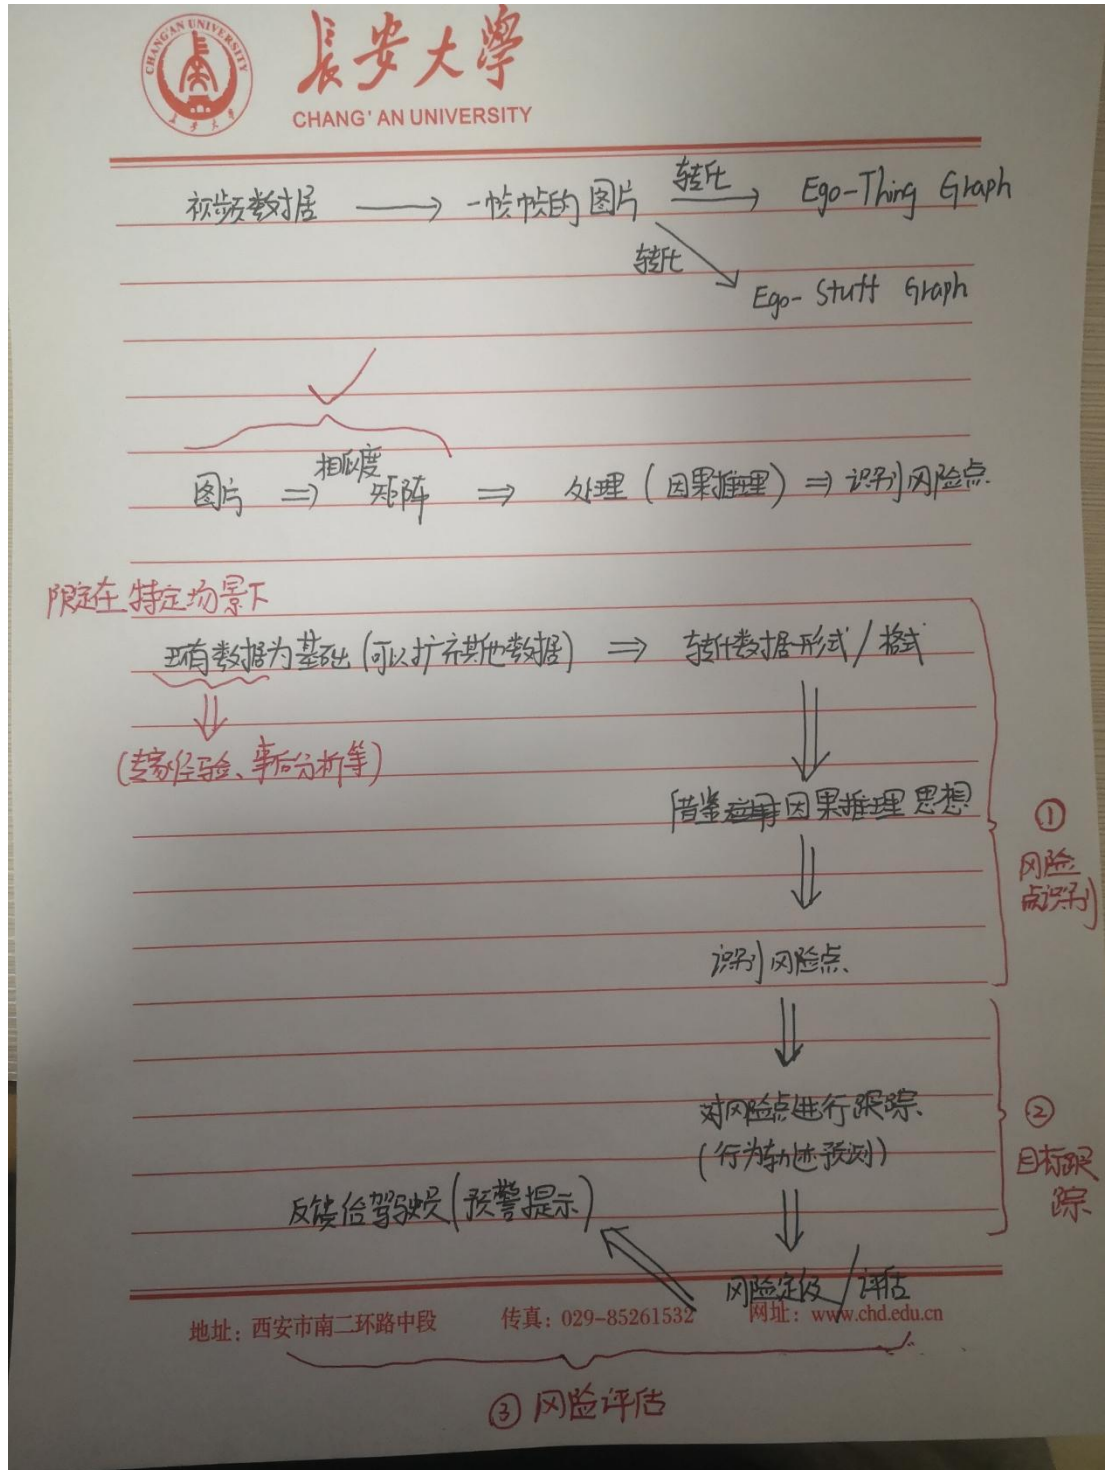 CHANG'AN UNIVERSITY
長安大學
長安大學
CHANG' AN UNIVERSITY
视频数据 → 一帧帧的图片 转化 → Ego-Thing Graph
转化 Ego-Stuff Graph
图片 ⇒ 相似度矩阵 ⇒ 处理(因果推理) ⇒ 识别风险点
限定在特定场景下
现有数据为基础(可以扩充其他数据) ⇒ 转化数据形式/格式
(专家经验、事后分析等)
借鉴因果推理思想
①
风险
点识别
识别风险点
对风险点进行跟踪
(行为轨迹预测)
②
目标跟
踪
反馈给驾驶员(预警提示)
风险定级/评估
地址:西安市南二环路中段 传真:029-85261532 网址:www.chd.edu.cn
③ 风险评估